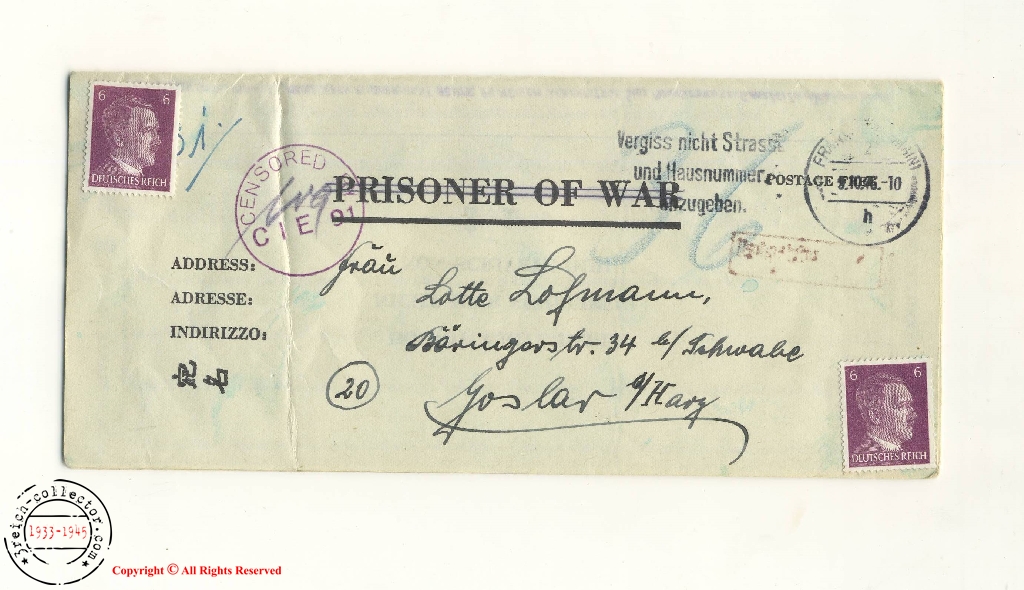 6 6
DEUTSCHES REICH
CENSORED
CIE 91
PRISONER OF WAR
Vergiss nicht Strasse
und Hausnummer
anzugeben.
POSTAGE FREE
h
ADDRESS:
ADRESSE:
INDIRIZZO:
宛
名
Frau
Lotte Lofmann,
Bäringerstr. 34 b/ Schwabe
20
Goslar a/Harz
6 6
DEUTSCHES REICH
3reich-collector.com
1933-1945
Copyright © All Rights Reserved